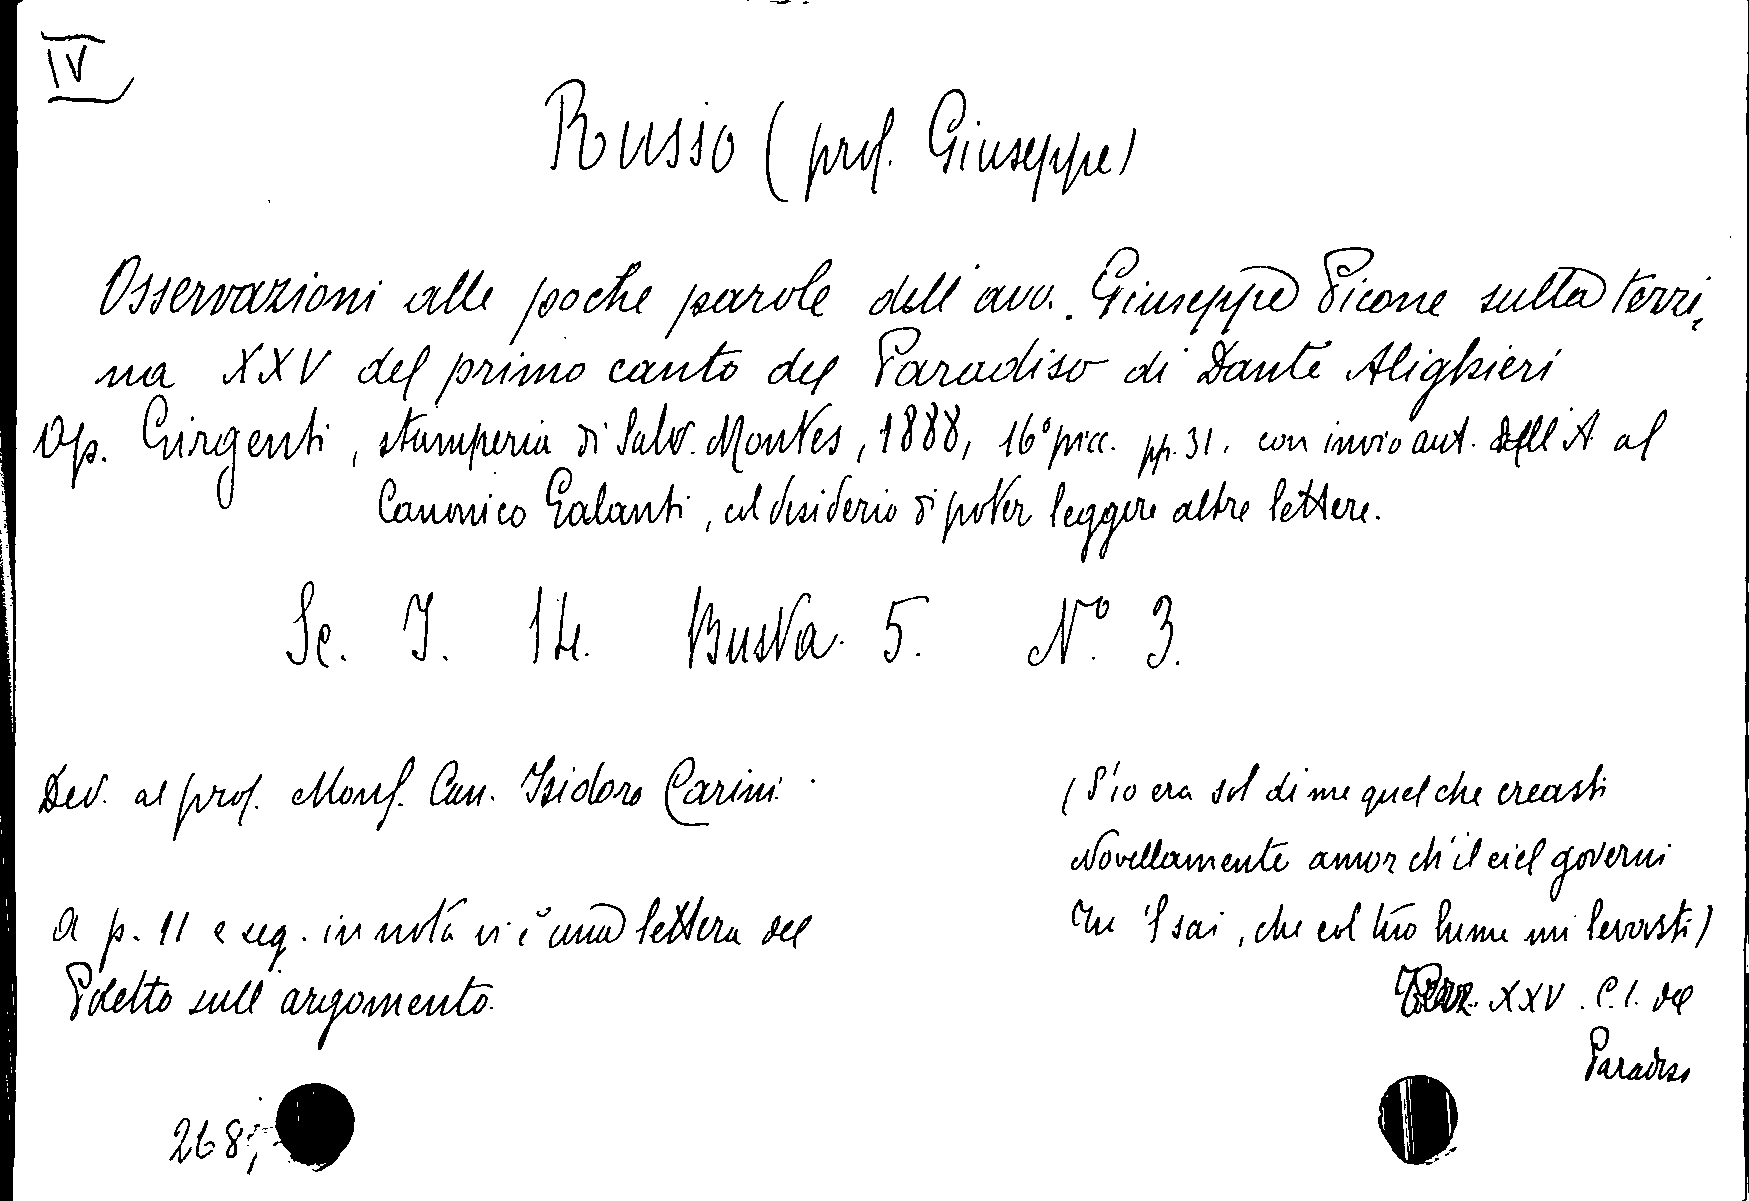 IV
Russo (prof. Giuseppe)
Osservazioni alle poche parole dell'avv. Giuseppe Picone sulla terzi,
na XXV del primo canto del Paradiso di Dante Alighieri
Op. Girgenti, stamperia di Salv. Montes, 1888, 16° picc. pp. 31. con invio aut. dell'A al
Canonico Galanti, col desiderio di poter leggere altre lettere.
Sc. I. 14. Busta. 5. N° 3.
Ded. al prof. Mons. Can. Isidoro Carini.
(S'io era sol di me quel che creasti
Novellamente amor ch'il ciel governi
Tu 'l sai, che col tuo lume mi levasti)
Terz. XXV. C. 1. del
Paradiso
A p. 11 e seg. in nota vi è una lettera del
Poletto sull'argomento.
268